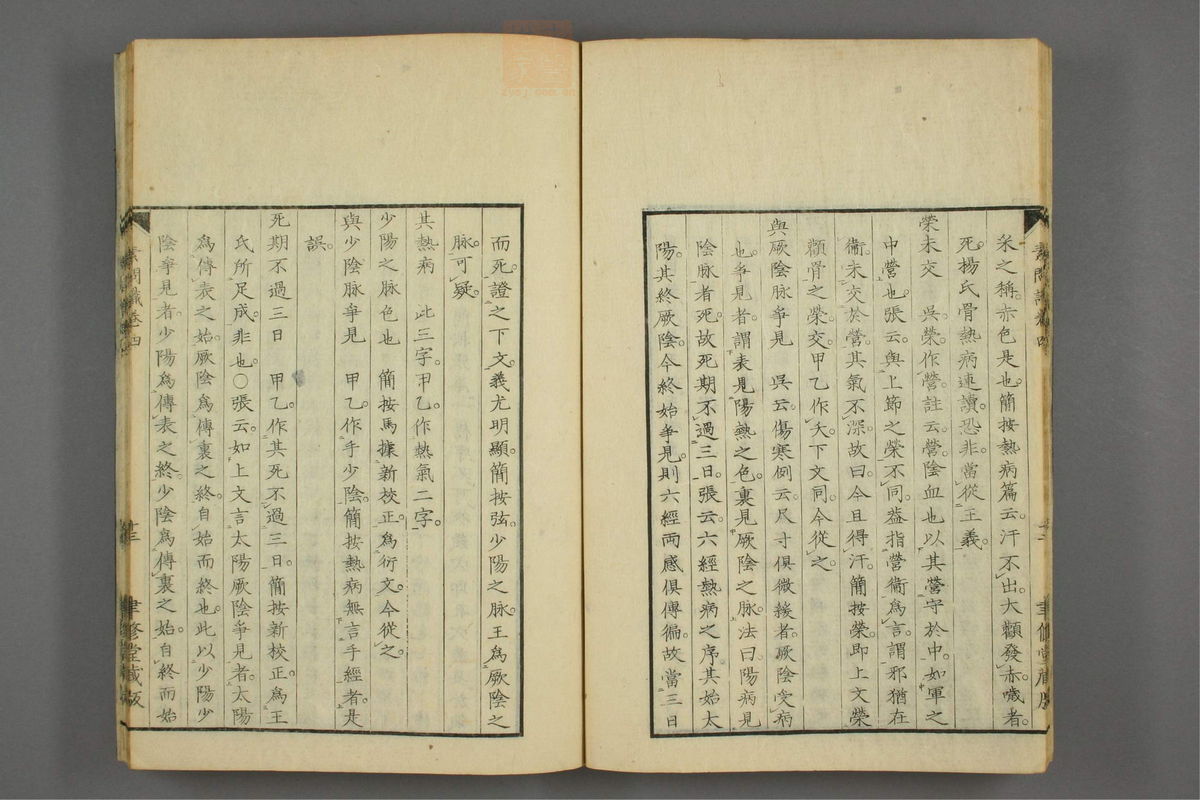 釆之稱。赤色是也。簡按熱病篇云。汗不出。大顴發赤。噦者。
死。楊氏骨熱病連讀。恐非。當從王義。
榮未交 吳。榮作營。註云。營。陰血也。以其營守於中。如軍之
中營也。張云。與上節之榮不同。蓋指營衞為言。謂邪猶在
衞。未交於營。其氣不深。故曰今且得汗。簡按榮。即上文榮
顴骨之榮。交。甲乙作夭。下文同。今從之。
與厥陰脉爭見 吳云。傷寒例云。尺寸俱微緩者。厥陰受病
也。爭見者。謂表見陽熱之色。裏見厥陰之脉。法曰陽病見
陰脉者死。故死期不過三日。張云。六經熱病之序。其始太
陽。其終厥陰。今終始爭見。則六經兩感俱傳徧。故當三日
而死。證之下文。義尤明顯。簡按弦。少陽之脉。王為厥陰之
脉。可疑。
其熱病 此三字。甲乙。作熱氣二字。
少陽之脉色也 簡按馬據新校正。為衍文。今從之。
與少陰脉爭見 甲乙。作手少陰。簡按熱病無言手經者。是
誤。
死期不過三日 甲乙。作其死不過三日。簡按新校正。為王
氏所足成。非也。○張云。如上文言太陽厥陰爭見者。太陽
為傳表之始。厥陰為傳裏之終。自始而終也。此以少陽少
陰爭見者。少陽為傳表之終。少陰為傳裏之始。自終而始
素問識卷四
聿修堂藏版